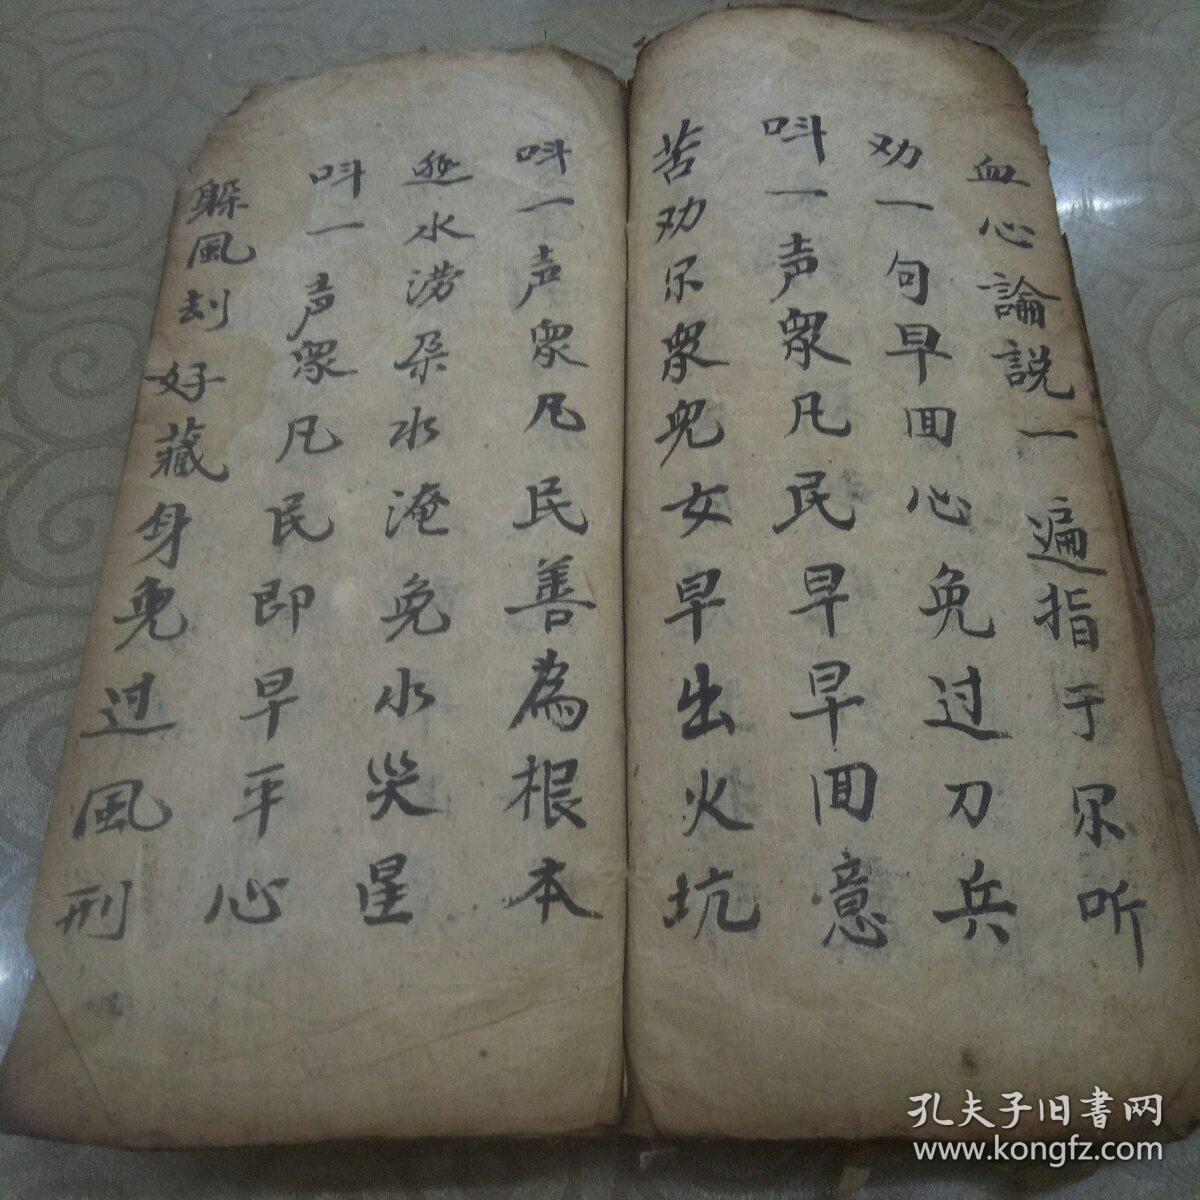 血心論説一遍指于尔听
劝一句早回心免过刀兵
呌一声衆凡民早早回意
苦劝尔衆児女早出火坑
呌一声衆凡民善為根本
水涝朶水淹免水灾星
呌一声衆凡民即早平心
躲風刦好藏身免过風刑
孔夫子旧書网
www.kongfz.com